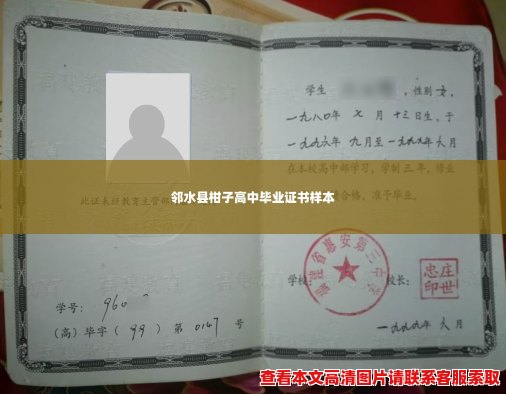 此证未经教育主管部
学号：960
（高）毕字（99）第 0147 号
学生 ，性别女，
一九八〇年 七 月 十三日生，于
一九九六年 九月至一九九九年六月
在本校高中部学习，学制三年，修业
合格，准予毕业。
邻水县柑子高中毕业证书样本
学校： 校长：
福建省惠安第三中学
庄世忠印
一九九九年 六 月
查看本文高清图片请联系客服索取